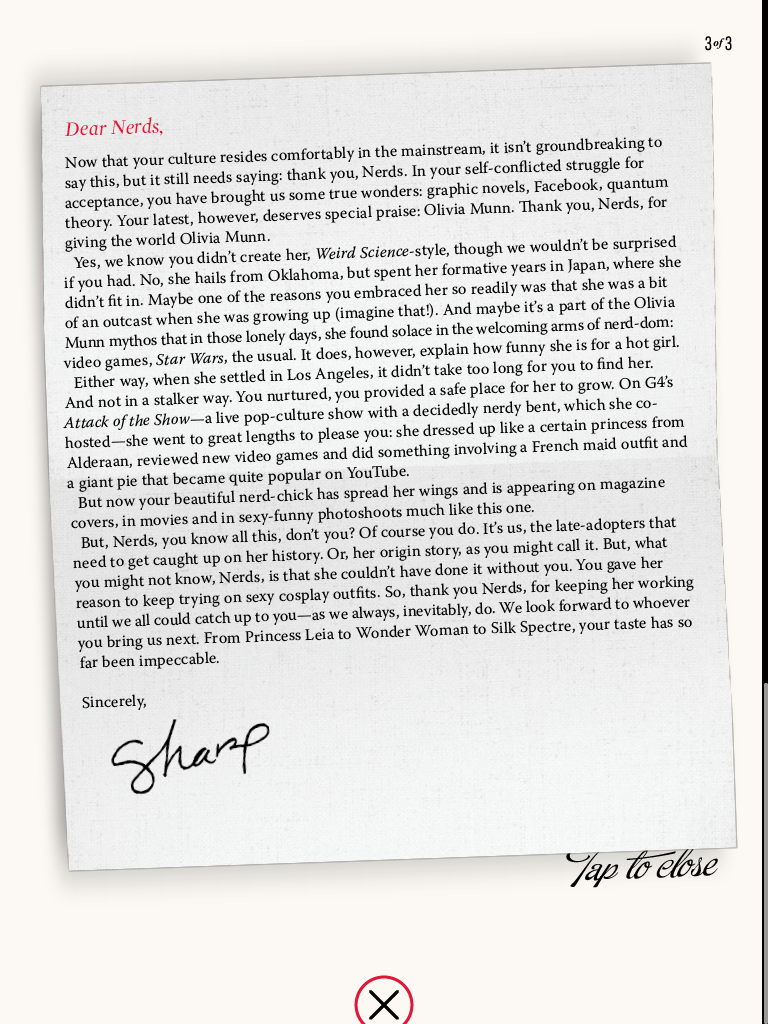 3 of 3
Dear Nerds,
Now that your culture resides comfortably in the mainstream, it isn't groundbreaking to
say this, but it still needs saying: thank you, Nerds. In your self-conflicted struggle for
acceptance, you have brought us some true wonders: graphic novels, Facebook, quantum
theory. Your latest, however, deserves special praise: Olivia Munn. Thank you, Nerds, for
giving the world Olivia Munn.
Yes, we know you didn't create her, Weird Science-style, though we wouldn't be surprised
if you had. No, she hails from Oklahoma, but spent her formative years in Japan, where she
didn't fit in. Maybe one of the reasons you embraced her so readily was that she was a bit
of an outcast when she was growing up (imagine that!). And maybe it's a part of the Olivia
Munn mythos that in those lonely days, she found solace in the welcoming arms of nerd-dom:
video games, Star Wars, the usual. It does, however, explain how funny she is for a hot girl.
Either way, when she settled in Los Angeles, it didn't take too long for you to find her.
And not in a stalker way. You nurtured, you provided a safe place for her to grow. On G4's
Attack of the Show—a live pop-culture show with a decidedly nerdy bent, which she co-
hosted—she went to great lengths to please you: she dressed up like a certain princess from
Alderaan, reviewed new video games and did something involving a French maid outfit and
a giant pie that became quite popular on YouTube.
But now your beautiful nerd-chick has spread her wings and is appearing on magazine
covers, in movies and in sexy-funny photoshoots much like this one.
But, Nerds, you know all this, don't you? Of course you do. It's us, the late-adopters that
need to get caught up on her history. Or, her origin story, as you might call it. But, what
you might not know, Nerds, is that she couldn't have done it without you. You gave her
reason to keep trying on sexy cosplay outfits. So, thank you Nerds, for keeping her working
until we all could catch up to you—as we always, inevitably, do. We look forward to whoever
you bring us next. From Princess Leia to Wonder Woman to Silk Spectre, your taste has so
far been impeccable.
Sincerely,
Sharp
Tap to close